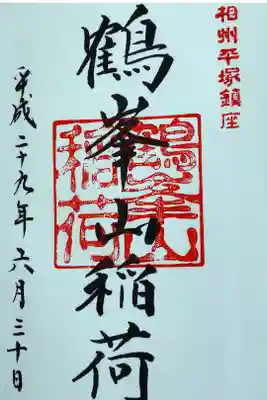 相州平塚鎮座
鶴峯山稲荷
鶴峯山
稲荷
平成二十九年六月三十日